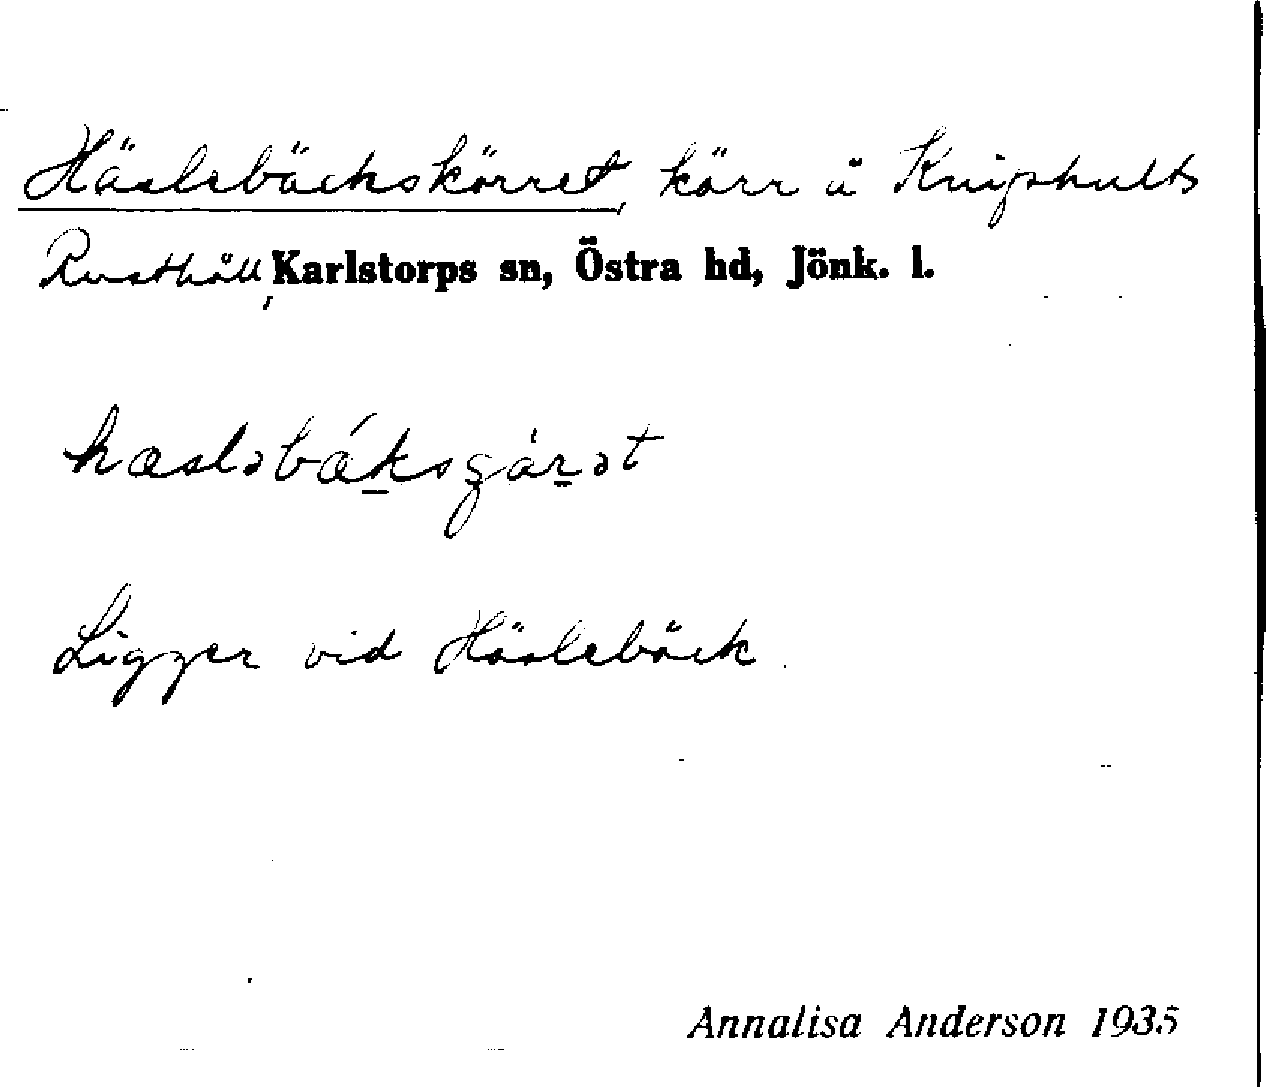 Häslebäckskärret, kärr å Knipshults
Rusthåll, Karlstorps sn, Östra hd, Jönk. l.
Ligger vid Häslebäck.
Annalisa Anderson 1935